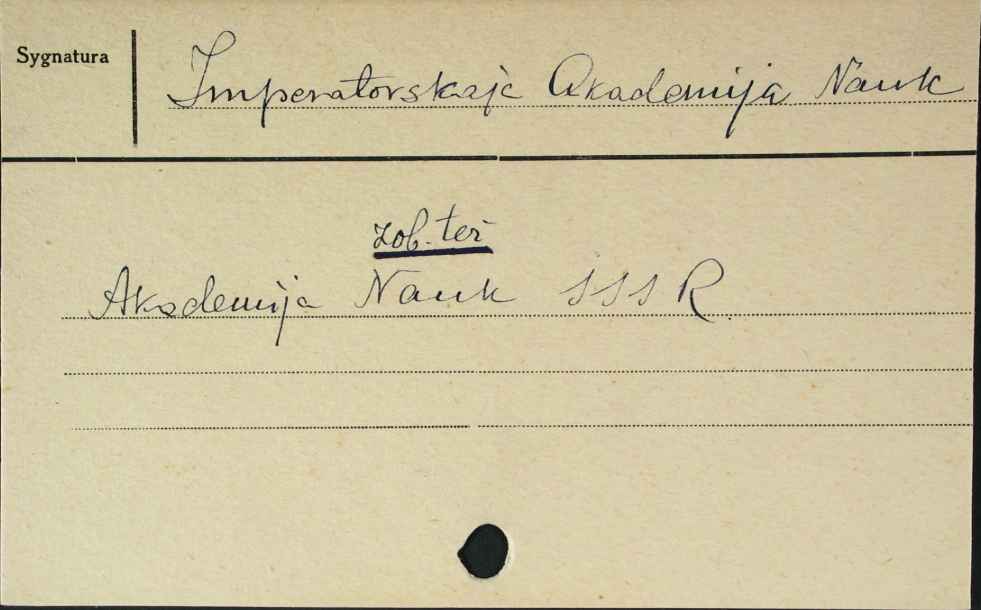 Sygnatura
Imperatorskaja Akademija Nauk
zob. też
Akademija Nauk SSSR